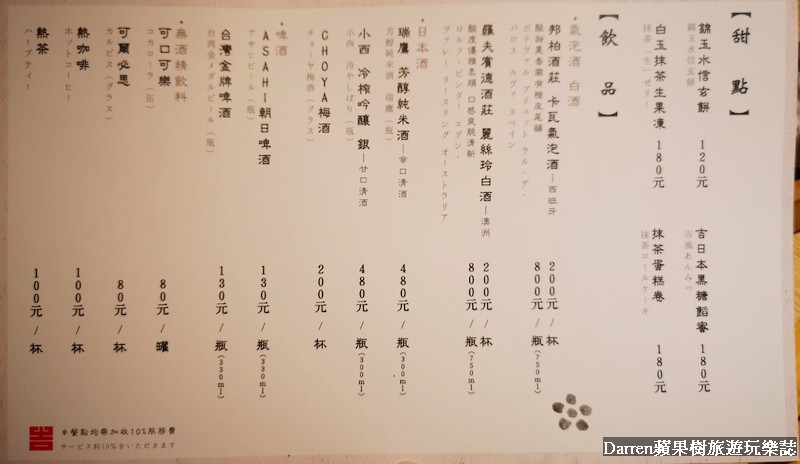 【甜點】
錦玉水信玄餅 120元
錦玉水信玄餅
白玉抹茶生果凍 180元
抹茶(生)ゼリー
吉日本黑糖餡蜜 180元
古風あんみつ
抹茶蛋糕卷 180元
抹茶ロールケーキ
【飲品】
・氣泡酒 白酒
邦柏酒莊 卡瓦氣泡酒—西班牙 200元/杯
800元/瓶(750ml)
ボナヴァル ブリュット ラル・デ・
バロス カヴァ スペイン
羅夫賓德酒莊 麗絲玲白酒—澳洲 200元/杯
800元/瓶(750ml)
酸度優雅柔順 口感爽脆清新
ロルフ・ビンダー エデン・
ヴァレー リースリング オーストラリア
・日本酒
瑞鷹 芳醇純米酒—辛口清酒 480元/瓶(300ml)
芳醇純米酒 瑞鷹(瓶)
小西 冷榨吟釀 銀—甘口清酒 480元/瓶(300ml)
小西 冷やしぼり(瓶)
CHOYA梅酒 200元/杯
チョーヤ梅酒(グラス)
・啤酒
ASAHI朝日啤酒 130元/瓶(330ml)
アサヒビール(瓶)
台灣金牌啤酒 130元/瓶(330ml)
台灣金メダルビール(瓶)
・無酒精飲料
可口可樂 80元/罐
コカコーラ(缶)
可爾必思 80元/杯
カルピス(グラス)
熱咖啡 100元/杯
ホットコーヒー
熱茶 100元/杯
ハーブティー
*餐點均需加收10%服務費
サービス料10%をいただきます
Darren蘋果樹旅遊玩樂誌